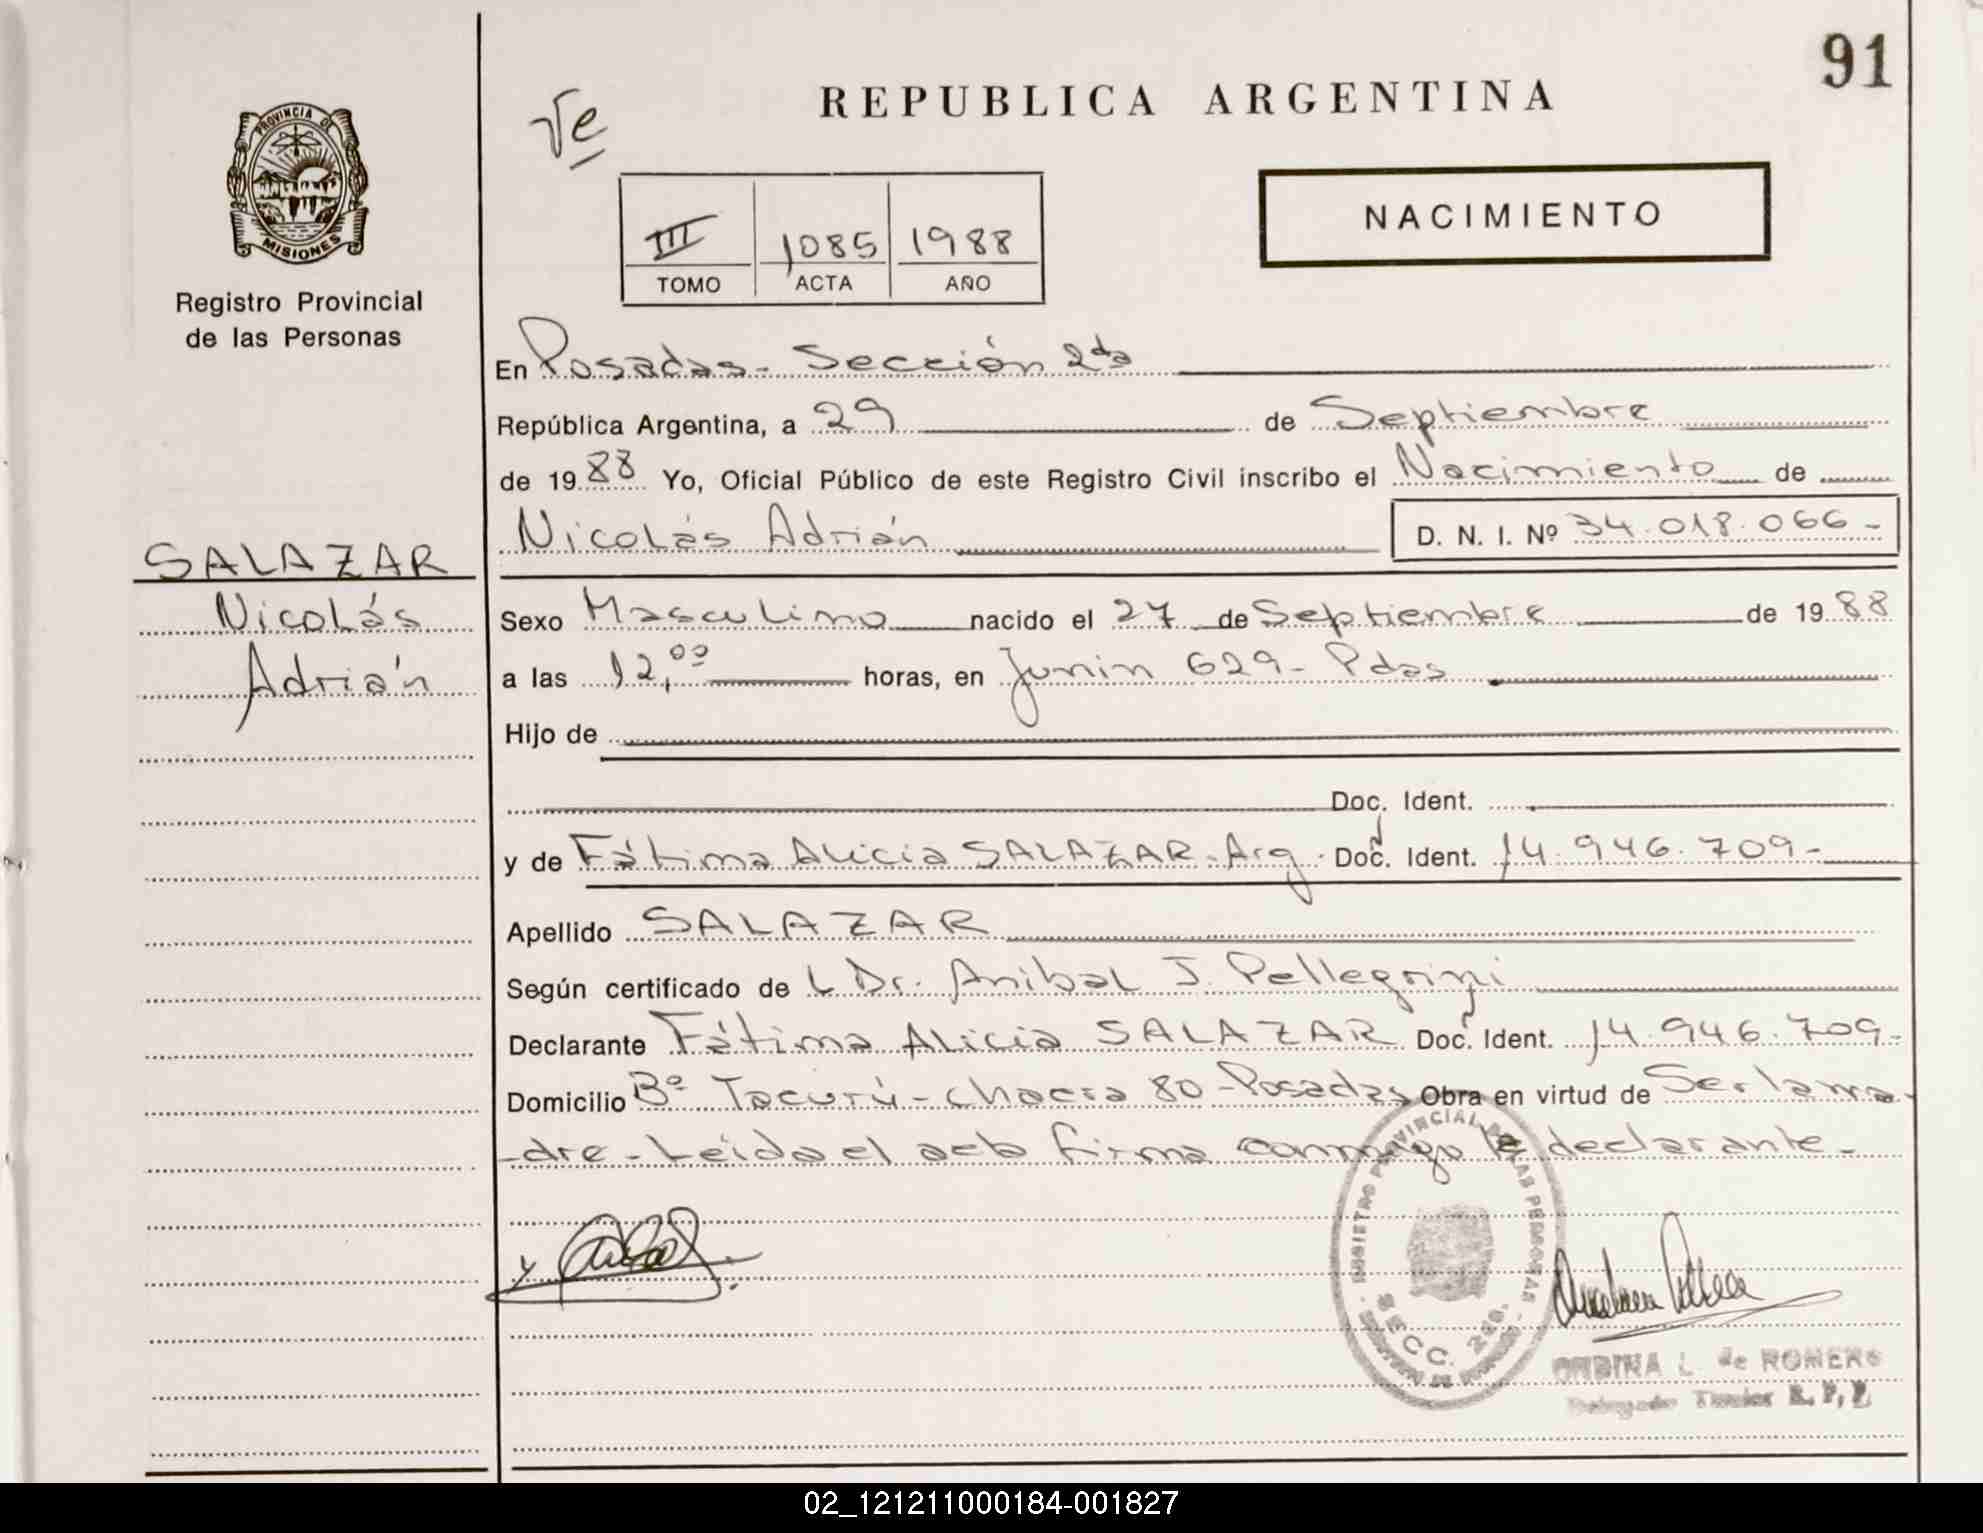 91
REPUBLICA ARGENTINA
PROVINCIA DE
MISIONES
Registro Provincial
de las Personas
NACIMIENTO
III 1085 1988
TOMO ACTA AÑO
En Posadas - Sección 2da
República Argentina, a 29 de Septiembre
de 1988 Yo, Oficial Público de este Registro Civil inscribo el Nacimiento de
Nicolás Adrián D. N. I. Nº 34.018.066-
SALAZAR
Nicolás
Adrián
Sexo Masculino nacido el 27 de Septiembre de 1988
a las 12,00 horas, en Junin 629 - Pdas
Hijo de
Doc. Ident.
y de Fátima Alicia SALAZAR - Arg. Doc. Ident. 14.946.709-
Apellido SALAZAR
Según certificado de L Dr. Anibal J. Pellegrini
Declarante Fátima Alicia SALAZAR Doc. Ident. 14.946.709-
Domicilio Bº Tacurú - chacra 80 - Posadas Obra en virtud de Ser la ma-
-dre - Leida el acta firma conmigo la declarante -
REGISTRO PROVINCIAL DE LAS PERSONAS
SECC. 2da.
L. de ROMERO
Delegado Titular R. P. P.
02_121211000184-001827